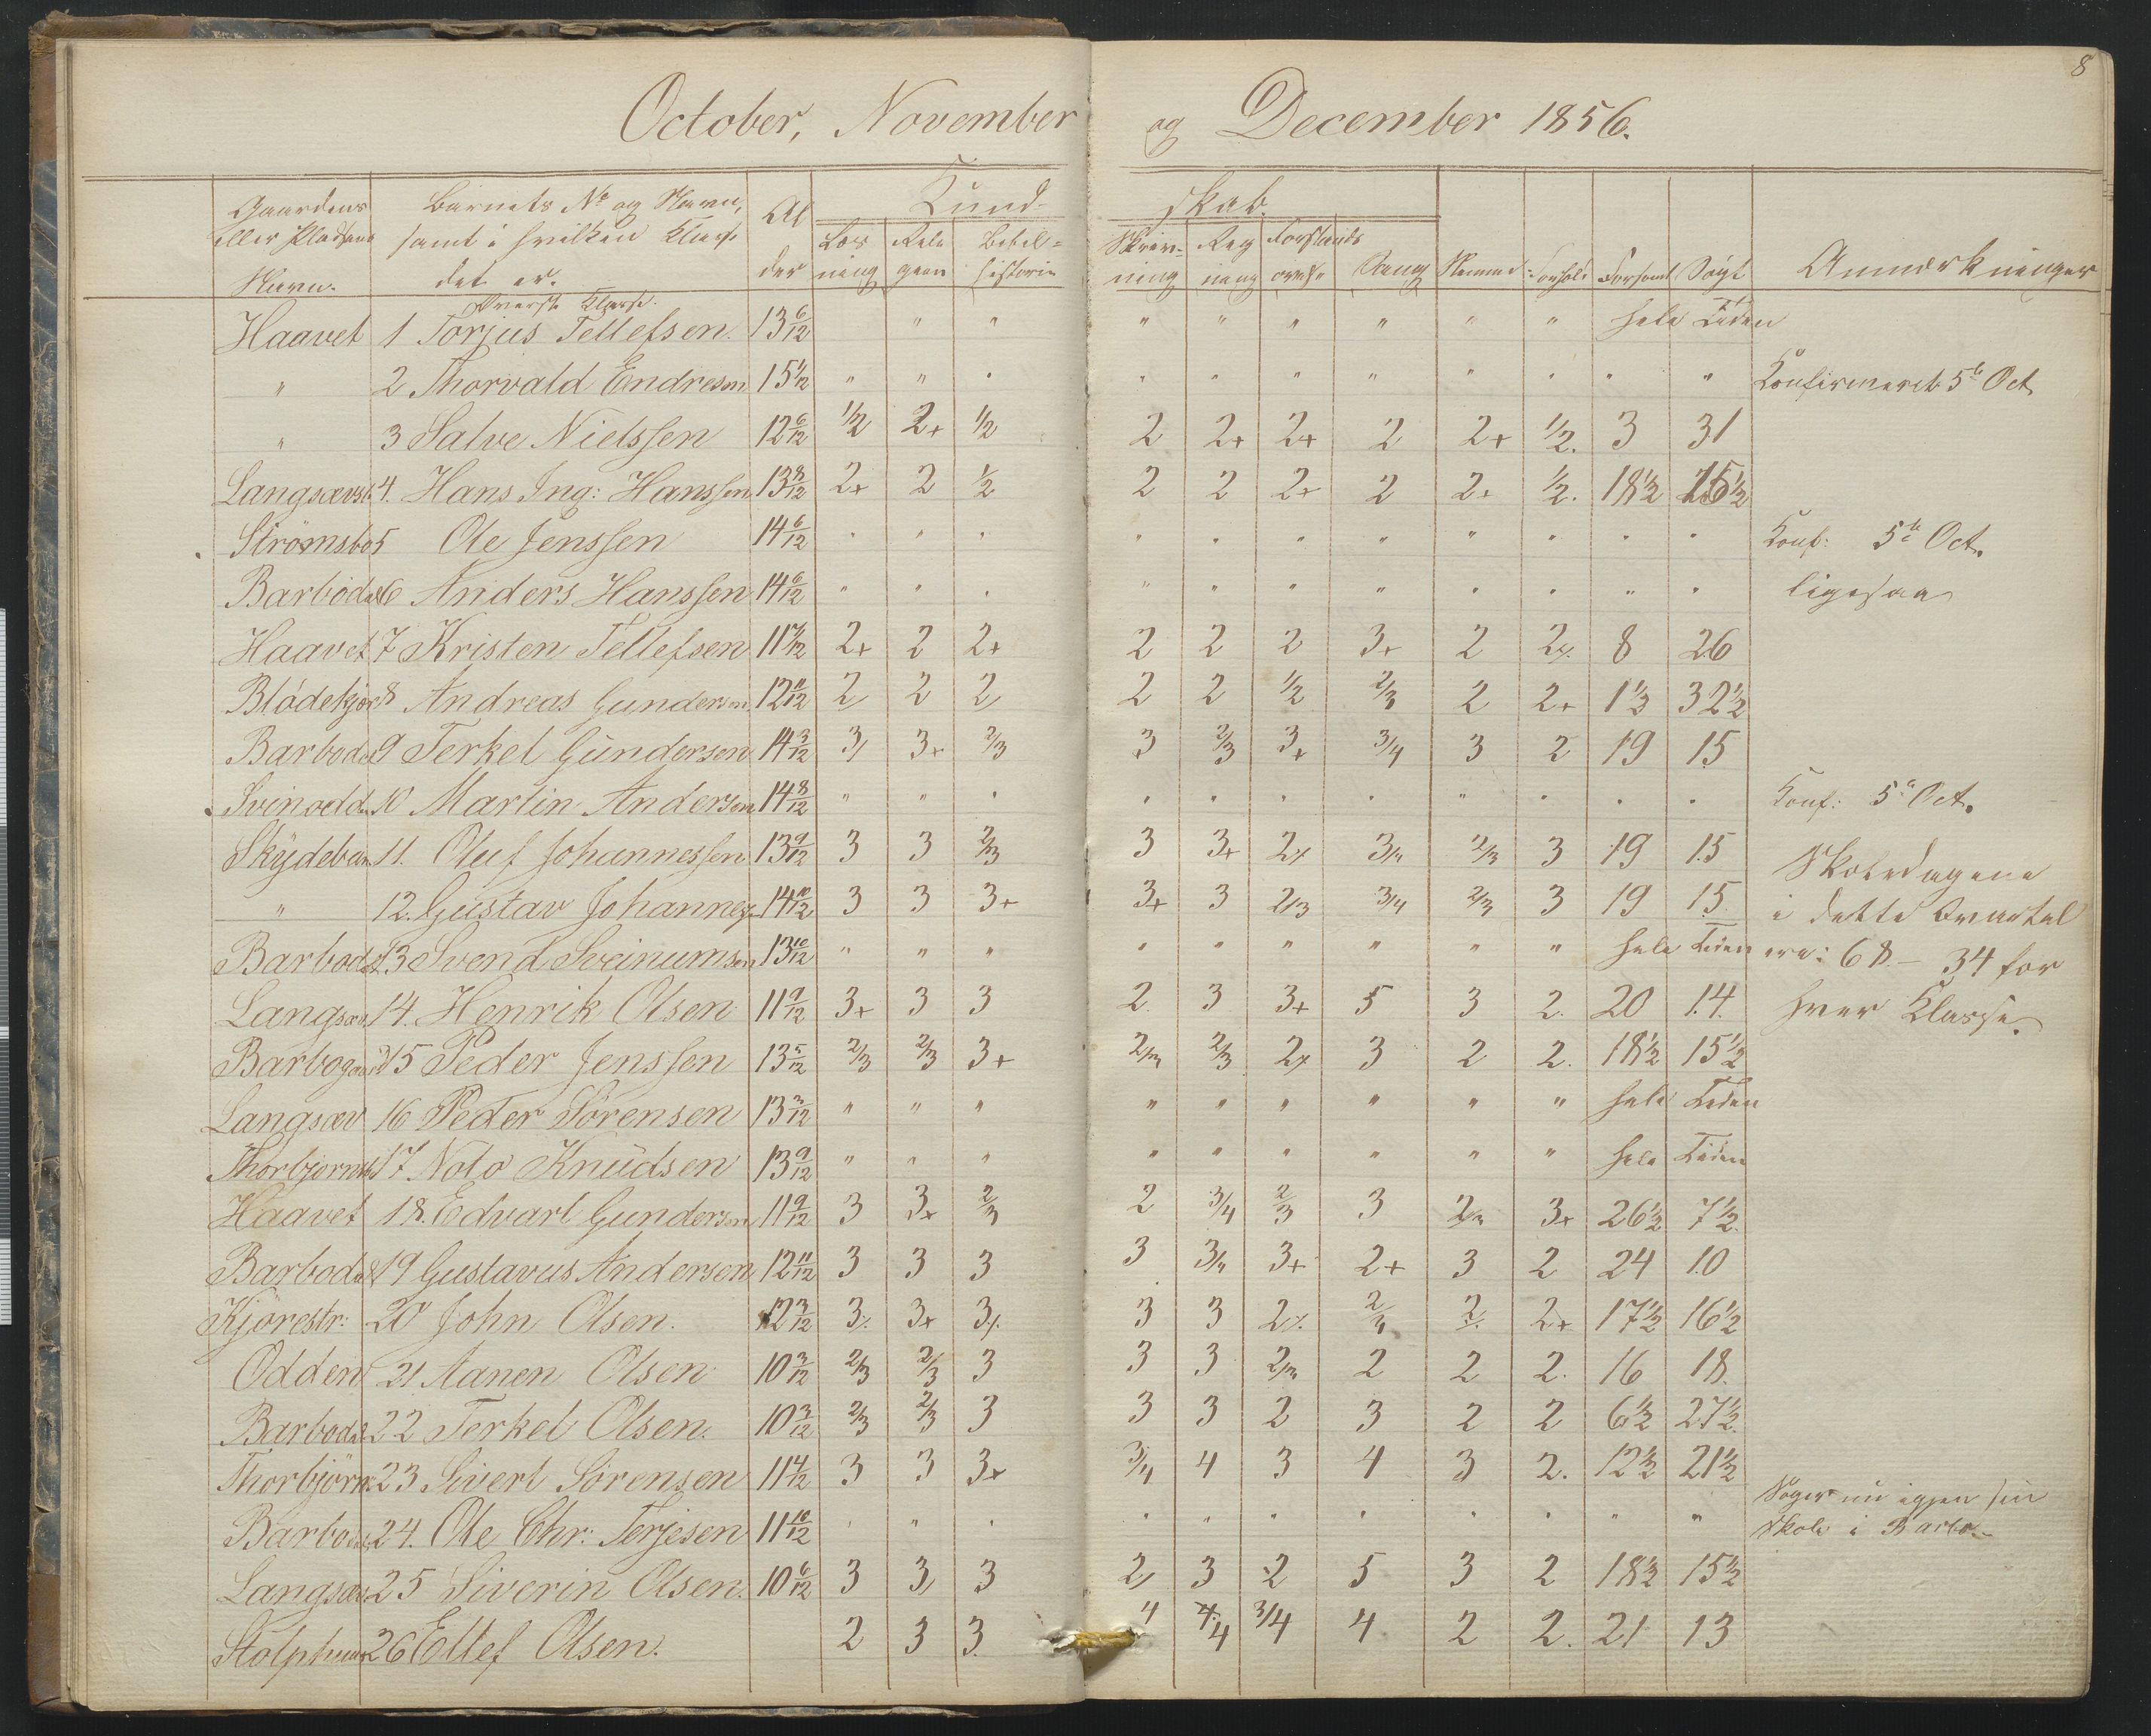 8
October, November og December 1856.
Gaardens eller Pladsens Navn. Barnets No og Navn, samt i hvilken Klasse det er. Alder Kundskab. Anmærkninger
Læsning Religion Bibelhistorie Skrivning Regning Forstandsøvelse Sang Nemme Forhold Forsømt Søgt
Øverste Klasse.
Haavet 1 Torjus Tellefsen. 13 6/12 " " " " " " " " hele Tiden
" 2 Thorvald Endresen 15 1/12 " " " " " " " " " " " Konfirmeret 5te Oct.
" 3 Salve Nielssen 12 6/12 1/2 2+ 1/2 2 2+ 2+ 2 2+ 1/2. 3 31
Langsævs 4. Hans Ing: Hanssen 13 8/12 2+ 2 1/2 2 2 2+ 2 2+ 1/2. 18 1/2 15 1/2
Strømsbo 5 Ole Jenssen 14 6/12 " " " " " " " " " " " Konf: 5te Oct.
Barbodal 6 Anders Hanssen 14 6/12 " " " " " " " " " " " ligesaa
Haavet 7 Kristen Tellefsen 11 7/12 2+ 2 2+ 2 2 2 3+ 2 2%. 8 26
Blødekjær 8 Andreas Gundersen 12 11/12 2 2 2 2 2 1/2 2/3 2 2+ 1 1/3 32 1/2
Barbodal 9 Terkel Gundersen 14 3/12 3/ 3+ 2/3 3 2/3 3+ 3/4 3 2 19 15
Svinodden 10 Martin Andersen 14 8/12 " " " " " " " " " " " Konf: 5te Oct.
Skydeban 11. Oluf Johannessen 13 9/12 3 3 2/3 3 3+ 2% 3/4 2/3 3 19 15
" 12. Gustav Johannes 14 10/12 3 3 3+ 3+ 3 2/3 3/4 2/3 3 19 15
Skoledagene
i dette Qvartal
ere: 68 – 34 for
hver Klasse.
Barbodal 13 Svend Sveinumsen 13 10/12 " " " " " " " " " hele Tiden
Langsæv 14. Henrik Olsen 11 9/12 3+ 3 3 2 3 3+ 5 3 2. 20 14.
Barbogaard 15 Peder Jenssen 13 5/12 2/3 2/3 3+ 2/3 2/3 2% 3 2 2. 18 1/2 15 1/2
Langsæv 16 Peder Sörensen 13 3/12 " " " " " " " " " hele Tiden
Thorbjørns 17 Noto Knudsen 13 9/12 " " " " " " " " " hele Tiden
Haavet 18. Edvart Gundersen 11 9/12 3 3+ 2/3 2 3/4 2/3 3 2/3 3+ 26 1/2 7 1/2
Barbodal 19 Gustavus Andersen 12 11/12 3 3 3 3 3/4 3+ 2+ 3 2 24 10
Kjorestr: 20 John Olsen. 12 3/12 3% 3+ 3% 3 3 2% 2/3 2% 2+ 17 1/2 16 1/2
Odden 21 Aanen Olsen 10 3/12 2/3 2/3 3 3 3 2/3 2 2 2. 16 18.
Barbodal 22 Terkel Olsen. 10 3/12 2/3 2/3 3 3 3 2 3 2 2 6 1/2 27 1/2
Thorbjörn 23 Sivert Sörensen 11 4/12 3 3 3+ 3/4 4 3 4 3 2. 12 1/2 21 1/2
Barbodal 24. Ole Chr: Terjesen 11 10/12 " " " " " " " " " " " Søger nu igjen sin Skole i Barbo.
Langsæv 25 Siverin Olsen. 10 6/12 3 3/ 3 2/ 3 2 5 3 2 18 1/2 15 1/2
26 Ellef Olsen. 2 3 3. 4 4 3/4 4 2 2. 21 13